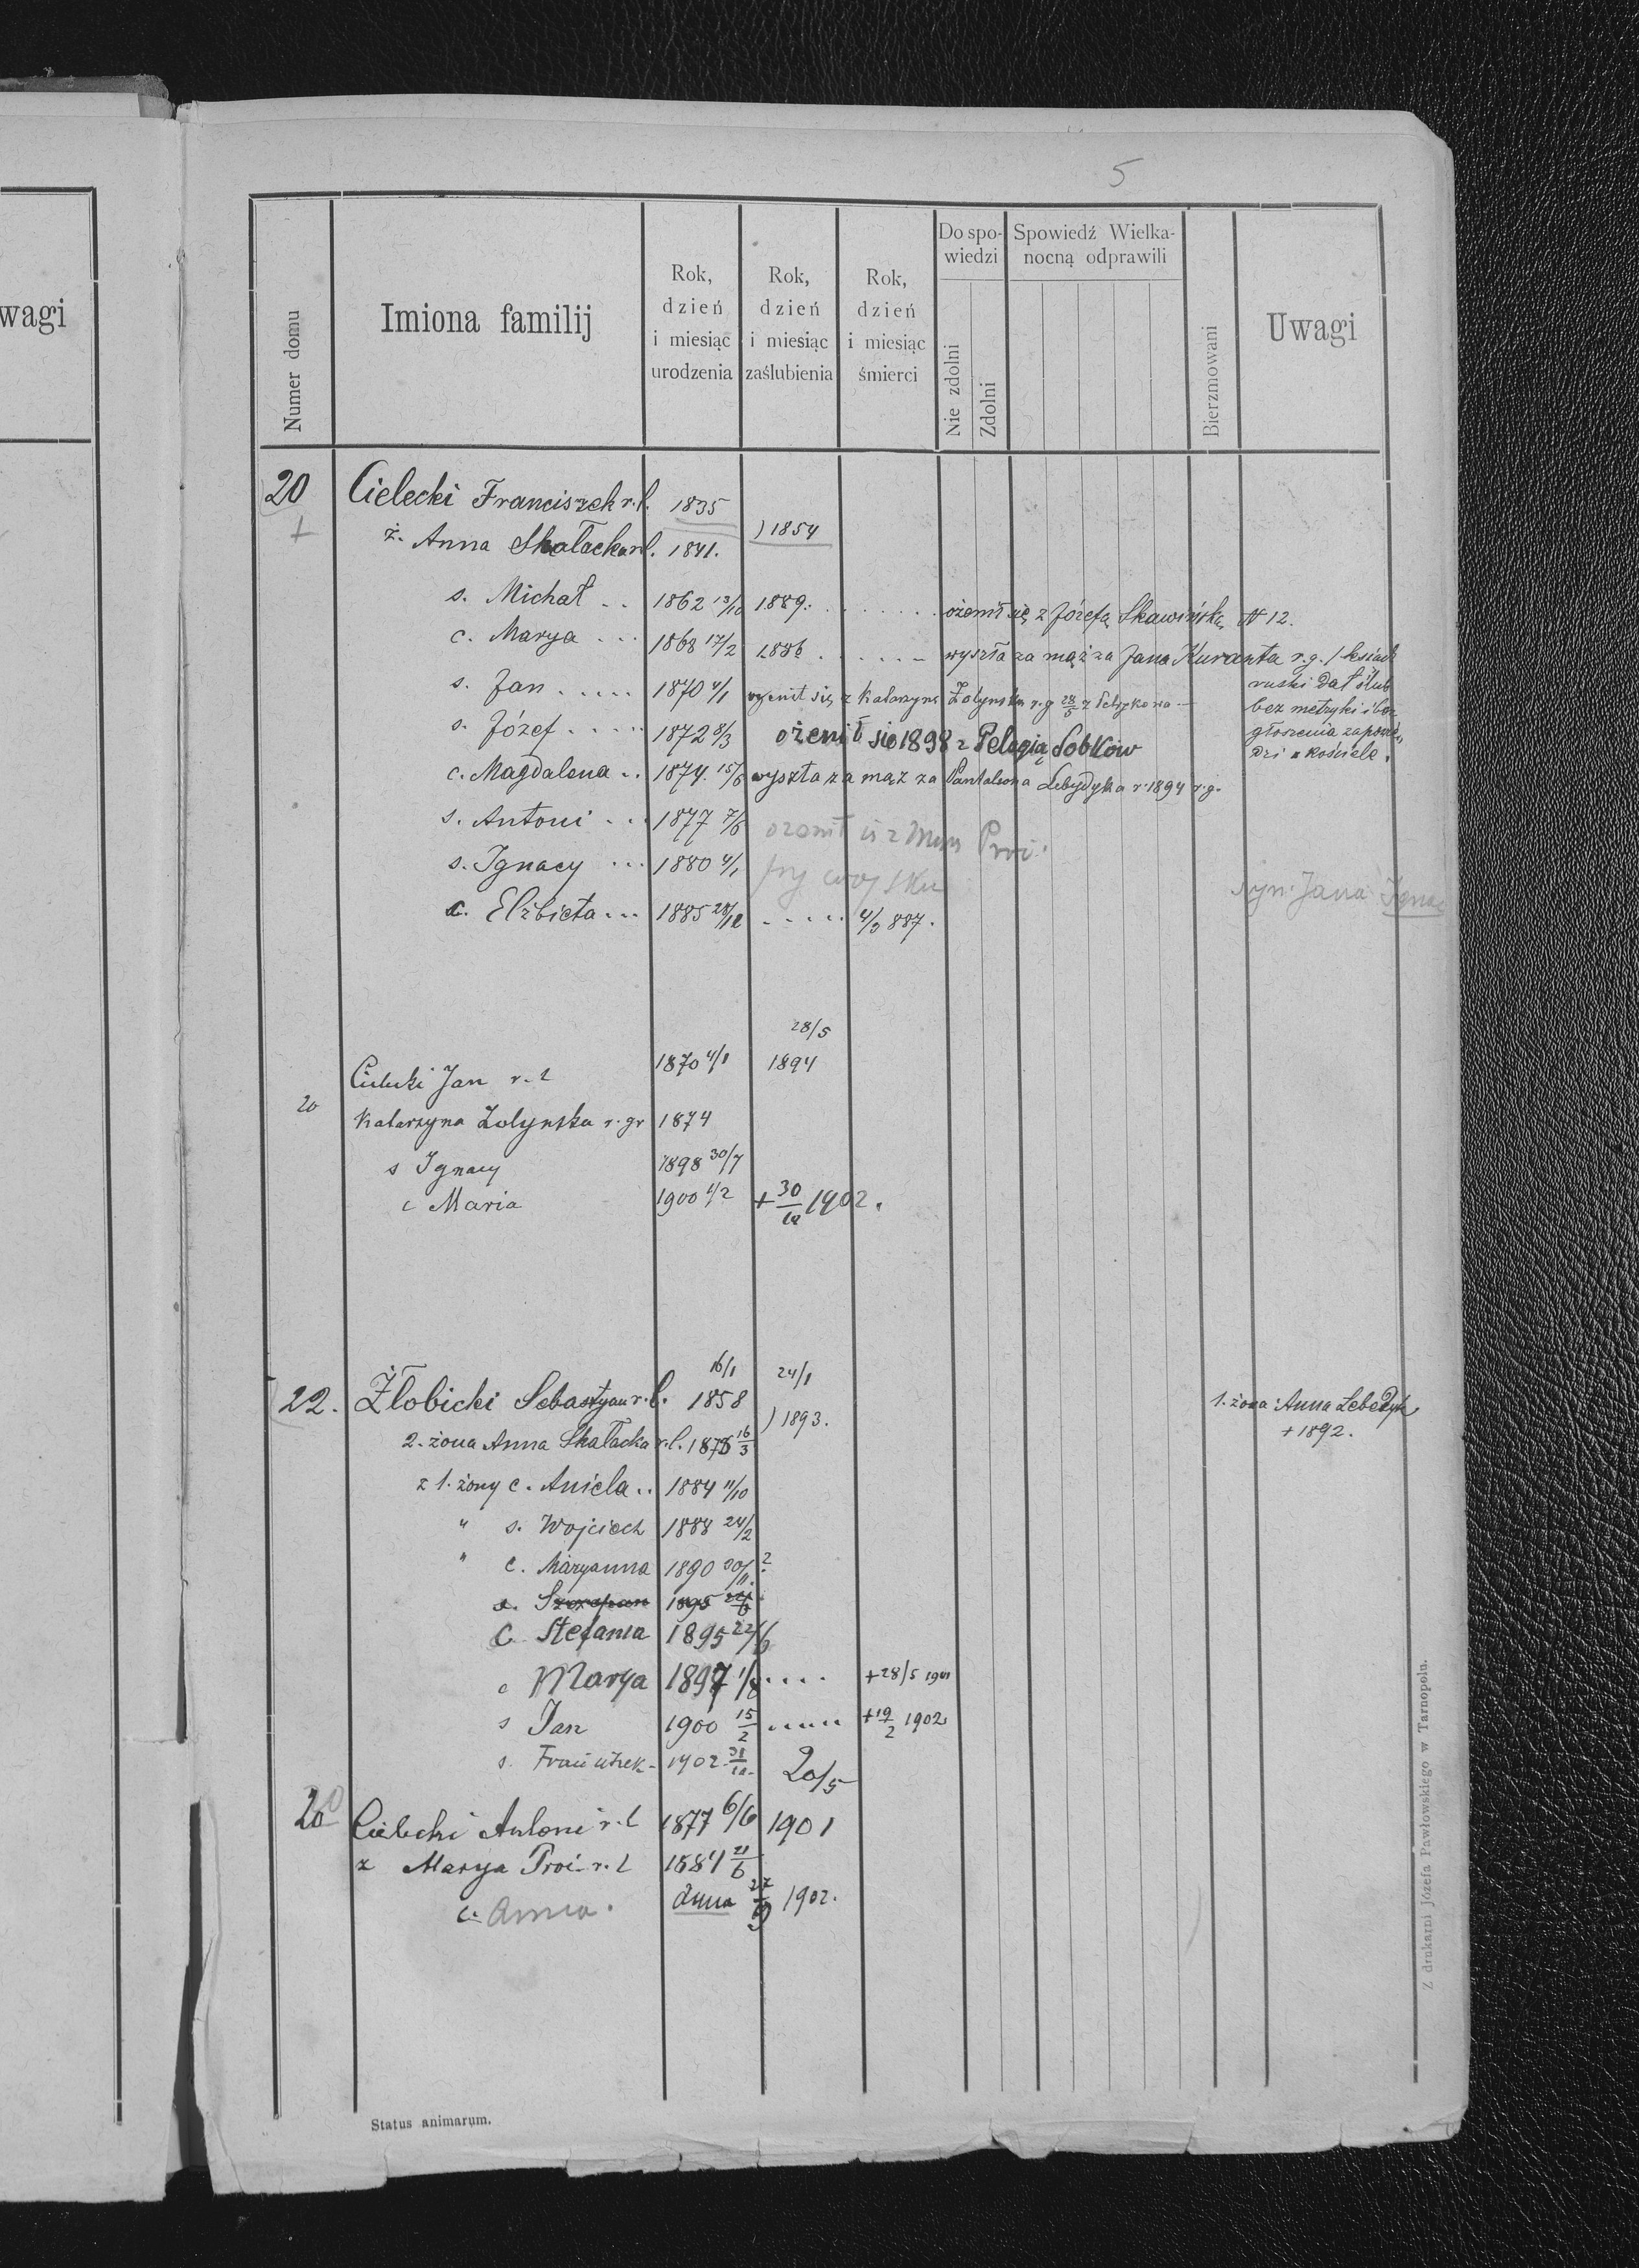 wagi
5
Numer domu
Imiona familij
Rok, dzień i miesiąc urodzenia
Rok, dzień i miesiąc zaślubienia
Rok, dzień i miesiąc śmierci
Do spo-wiedzi
Nie zdolni
Zdolni
Spowiedź Wielka-nocną odprawili
Bierzmowani
Uwagi
20 Cielecki Franciszek r.l. 1835
+ ż. Anna Skałacka r.l. 1841. ) 1854
s. Michał .. 1862 13/10 1889. . . . . . . . ożenił się z Józefą Skawińską N 12.
c. Marya ... 1868 17/2 1886 . . . . . . wyszła za mąż za Jana Kuranta r.g. /
s. Jan ..... 1870 4/1 ożenił się z Katarzyną Zolynska r.g 28/5 z
ruski dał ślub
bez metryki i bez
s. Józef ..... 1872 8/3 ożenił się 1898 z Pelagią Sobków
głoszenia zapowie„
dzi w kościele.
c. Magdalena .. 1874. 15/6 wyszła za mąż za Pantaleona Lebydyka r. 1894 r.g.
s. Antoni ... 1877 7/6 ożenił się z Proi
s. Ignacy ... 1880 4/1 przy wojsku
syn: Jana Ignac
c. Elżbieta ... 1885 28/12 ..... 4/3 887.
28/5
Cielecki Jan r.l 1870 4/1 1894
20
Katarzyna Zolynska r. gr 1874
s Ignacy 1898 30/7
c Maria 1900 1/2 + 30/10 1902.
16/1 24/1
22. Żłobicki Sebastyan r.l. 1858 ) 1893.
1. żona Anna Lebedyk
+ 1892.
2. żona Anna Skałacka r.l. 1875 16/3
z 1. żony c. Aniela .. 1884 11/10
" s. Wojciech 1888 24/2
" c. Maryanna 1890 30/11. ?
s. Szczepan 1895 22/6
C. Stefania 1895 22/6
c Marya 1897 1/8 .... + 28/5 1901
s Jan 1900 15/2 ..... + 19/2 1902
s. Franciszek - 1902 31/10. 20/5
20 Cielecki Antoni r.l 1877 6/6 1901
ż Marya Proi r.l 1884 21/6
c. Anna. Anna 27/9 1902.
Status animarum.
Z drukarni Józefa Pawłowskiego w Tarnopolu.